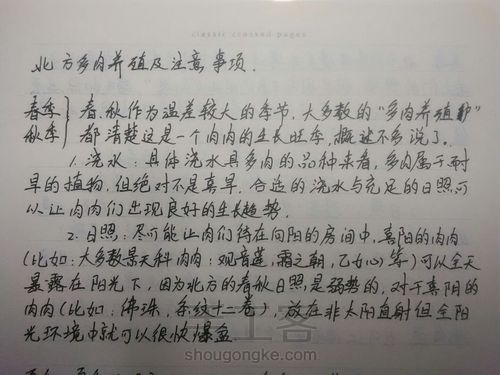 classic crossed pages
北方多肉养殖及注意事项.
春季 } 春、秋作为温差较大的季节，大多数的“多肉养殖户”
秋季 } 都清楚这是一个肉肉的生长旺季，概述不多说了。
1. 浇水：具体浇水具多肉的品种来看，多肉属于耐
旱的植物，但绝对不是真旱，合适的浇水与充足的日照可
以让肉肉们出现良好的生长趋势.
2. 日照：尽可能让肉们待在向阳的房间中，喜阳的肉肉
(比如：大多数景天科肉肉：观音莲，霜之朝，乙女心等)可以全天
暴露在阳光下，因为北方的春秋日照是弱势的，对于喜阴的
肉肉(比如：佛珠，条纹十二卷)，放在非太阳直射但全阳
光环境中就可以很快爆盆.
手工客
shougongke.com